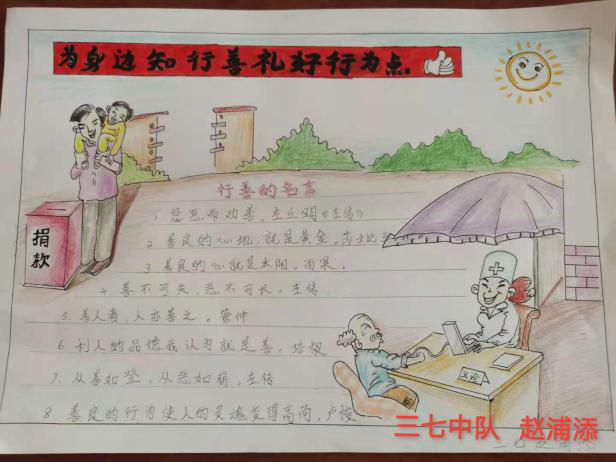 为身边知行善礼好行为点
行善的名言
捐款
1 惩恶而劝善。左丘明《左传》
2 善良的心地,就是黄金。莎士比亚
3 善良的心就是太阳。雨果。
4 善不可失,恶不可长。左传
5. 善人者,人亦善之。管仲
6 利人的品德我认为就是善,培根
7. 从善如登,从恶如崩,左传
8 善良的行为使人的灵魂变得高尚,卢梭
义诊
三七中队 赵浦添
三七赵浦添